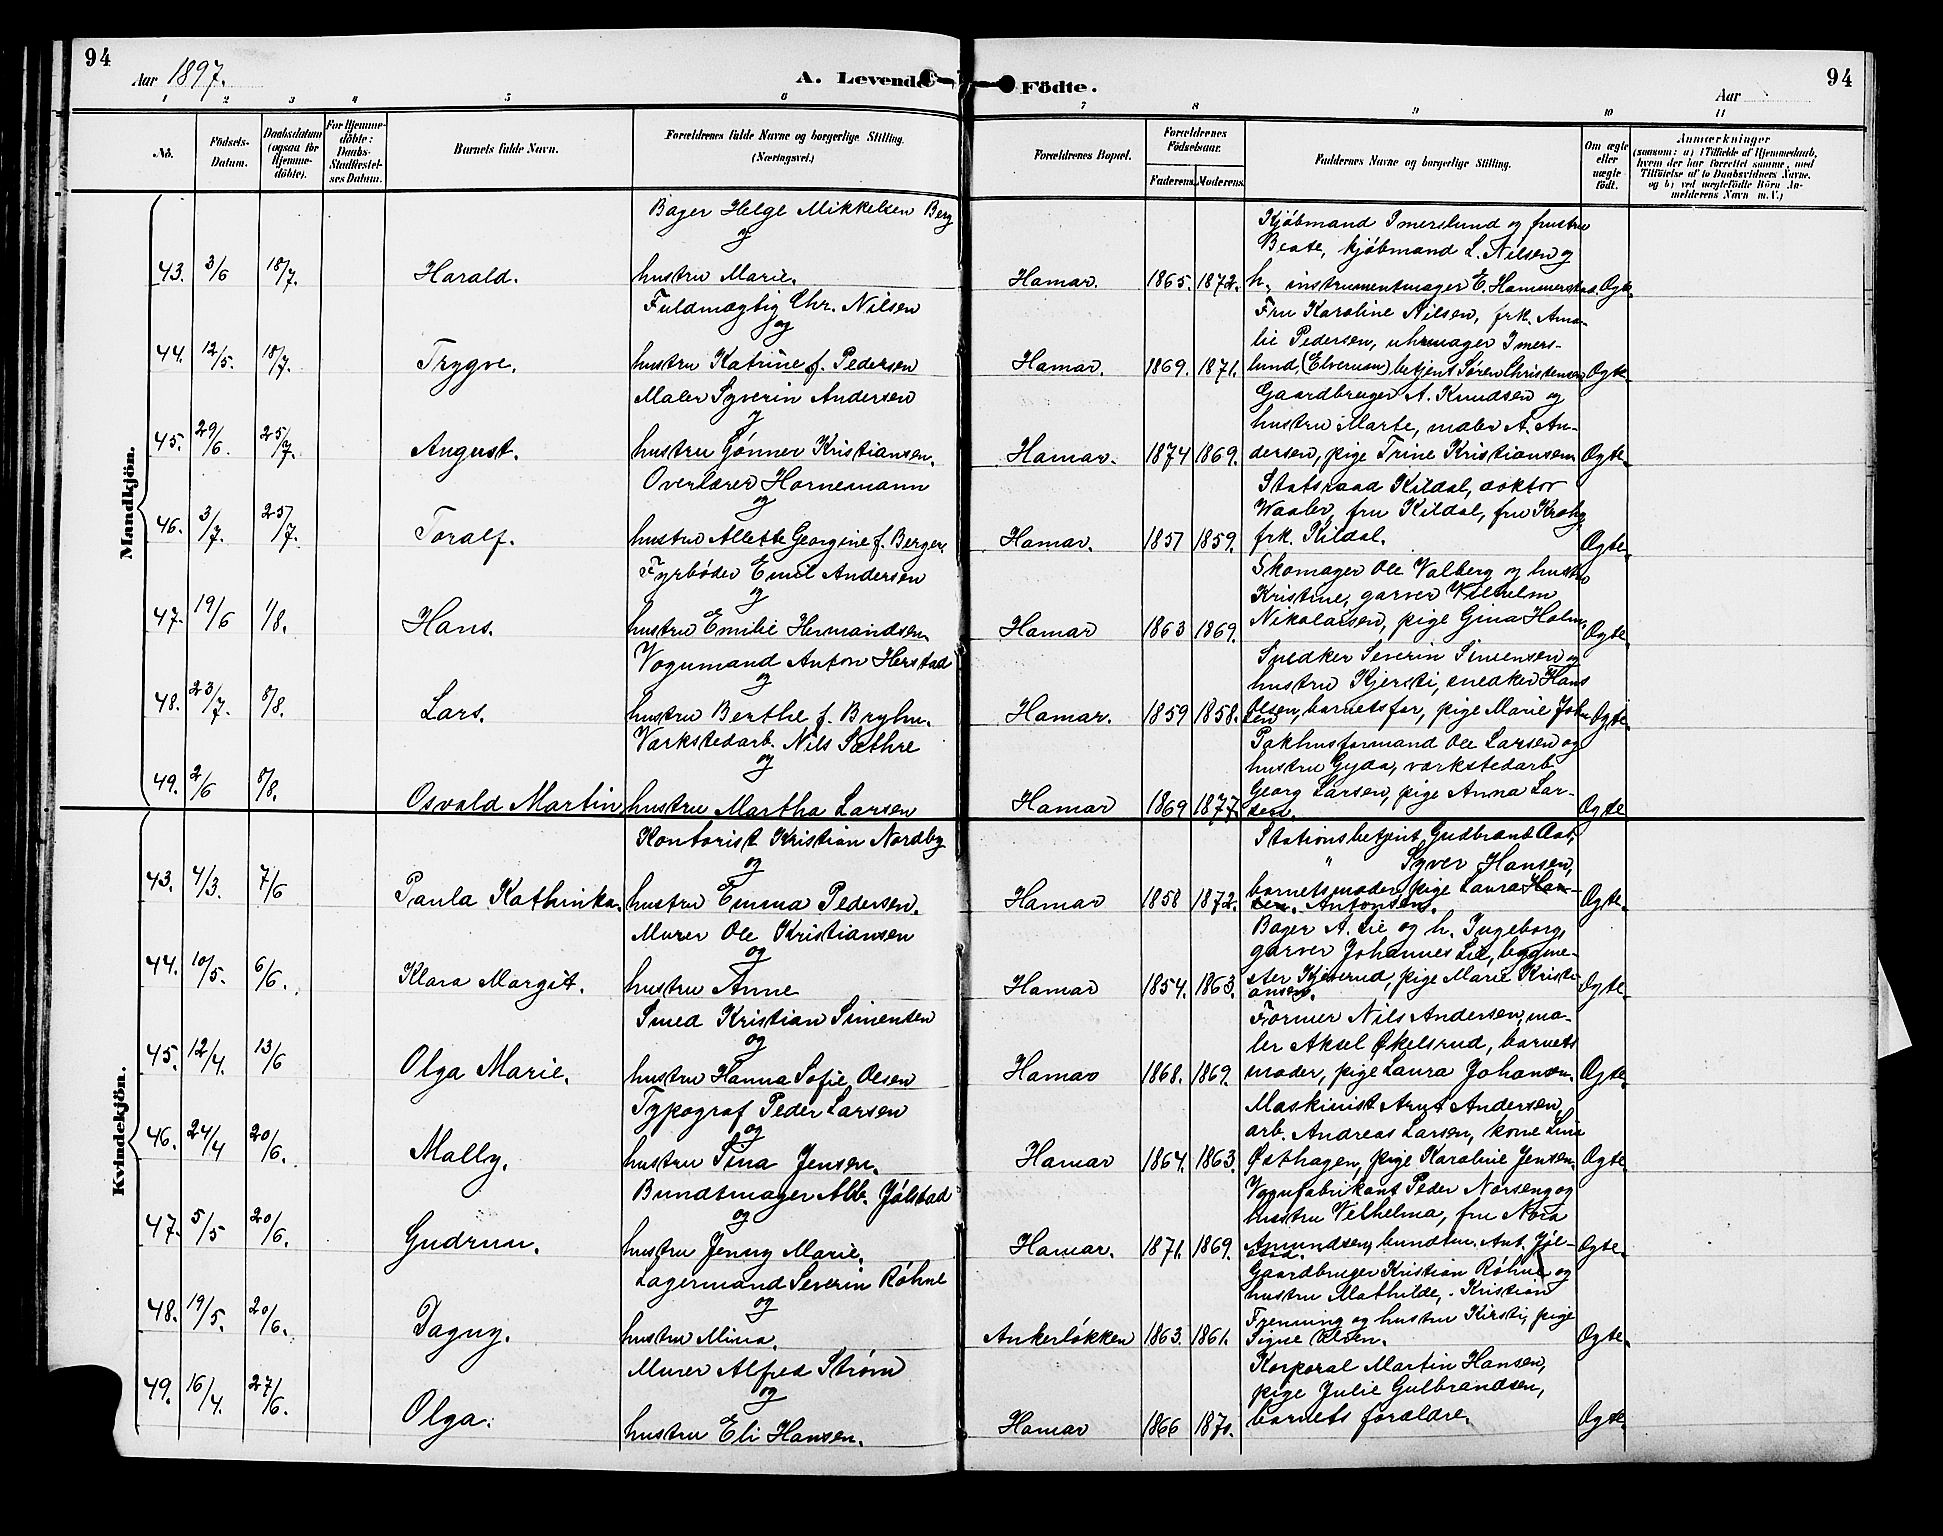 94
Aar 1897.
A. Levende Födte.
94
Aar
1 2 3 4 5 6 7 8 9 10 11
No. Födsels-Datum. Daabsdatum (ogsaa for Hjemme-döbte). For Hjemme-döbte: Daabs-Stadfæstel-ses Datum. Barnets fulde Navn. Forældrenes fulde Navne og borgerlige Stilling. (Næringsvei.) Forældrenes Bopæl. Forældrenes Födselsaar. Faderens. Moderens. Faddernes Navne og borgerlige Stilling. Om ægte eller uægte födt. Anmærkninger (saasom: a) i Tilfælde af Hjemmedaab, hvem der har forrettet samme, med Tilföielse af to Daabsvidners Navne, og b) ved uægtefödte Börn An-melderens Navn m. V.)
Mandkjön.
Bager Helge Mikkelsen Berg
og
43. 3/6 18/7. Harald. hustru Marie. Hamar. 1865. 1872.
Kjøbmand Imerslund og frustru
Beate, kjøbmand L. Nilsen og
h., instrumentmager E. Hammerstad. Ægte.
Fuldmægtig Chr. Nilsen
og
44. 12/5. 18/7. Trygve. hustru Katrine f. Pedersen Hamar. 1869. 1871.
Fru Karoline Nilsen, frk. Ama-
lie Pedersen, uhrmager Imers-
lund, (Elverum) betjent Søren Christensen Ægte.
Maler Syverin Andersen
og
45. 29/6. 25/7. August. hustru Gønner Kristiansen. Hamar. 1874 1869.
Gaardbruger A. Knudsen og
hustru Marte, maler A. An-
dersen, pige Trine Kristiansen Ægte.
Overlærer Hornemann
og
46. 3/7. 25/7. Toralf. hustru Alette Georgine f. Berger. Hamar. 1857 1859.
Statsraad Kildal, doktor
Waaler, fru Kildal, fru Krohg,
frk. Kildal. Ægte.
Fyrbøder Emil Andersen
og
47. 19/6 1/8. Hans. hustru Emilie Hermandsen. Hamar 1863 1869.
Skomager Ole Valberg og hustru
Kristine, garver Vilhelm
Nikolaisen, pige Gina Holm. Ægte.
Vognmand Anton Herstad
og
48. 23/7. 8/8. Lars. hustru Berthe f. Bryhn. Hamar. 1859 1858.
Snedker Severin Simensen og
hustru Kjersti, snedker Hans
Olsen, barnets far, pige Marie John
sen Ægte.
Værkstedarb. Nils Sæthre
og
49. 2/6 8/8. Osvald Martin hustru Martha Larsen Hamar 1869 1877.
Pakhusformand Ole Larsen og
hustru Gyda, værkstedarb.
Georg Larsen, pige Anna Lar-
sen. Ægte
Kvindekjön.
Kontorist Kristian Nordby
og
43. 4/3. 7/6 Paula Kathinka. hustru Emma Pedersen. Hamar 1858 1872.
Stationsbetjent Gudbrand Aas,
" Syver Hansen,
barnets moder, pige Laura Han-
sen. Antonsen. Ægte.
Murer Ole Kristiansen
og
44. 10/5. 6/6. Klara Margit. hustru Anne Hamar 1854. 1863.
Bager A. Lie og h. Ingeborg,
garver Johannes Lie, bygme-
ster Kjeverud, pige Marie Kristi-
ansen. Ægte.
Smed Kristian Simensen
og
45. 12/4. 13/6 Olga Marie. hustru Hanna Sofie Olsen Hamar 1868. 1869.
Former Nils Andersen, ma-
ler Aksel Økelsrud, barnets
moder, pige Laura Johansen. Ægte.
Typograf Peder Larsen
og
46. 24/4 20/6. Mally. hustru Tina Jensen. Hamar 1864. 1863.
Maskinist Arnt Andersen,
arb. Andreas Larsen, kone Lina
Østhagen, pige Karoline Jensen. Ægte
Bundtmager Alb. Jølstad
og
47. 5/5 20/6. Gudrun. hustru Jenny Marie. Hamar. 1871. 1869.
Vognfabrikant Peder Norseng og
hustru Vilhelma, fru Nora
Amundsen, bundtm. Ant. Jøl-
stad. Ægte.
Lagermand Severin Røhne
og
48. 19/5. 20/6. Dagny. hustru Mina. Ankerløkken 1863. 1861.
Gaardbruger Kristian Røhne og
hustru Mathilde, Kristian
Frenning og hustru Kirsti, pige
Signe Olsen. Ægte
Murer Alfred Strøm
og
49. 16/4. 27/6. Olga. hustru Eli Hansen. Hamar 1866 1870.
Korporal Martin Hansen,
pige Julie Gulbrandsen,
barnets forældre. Ægte.